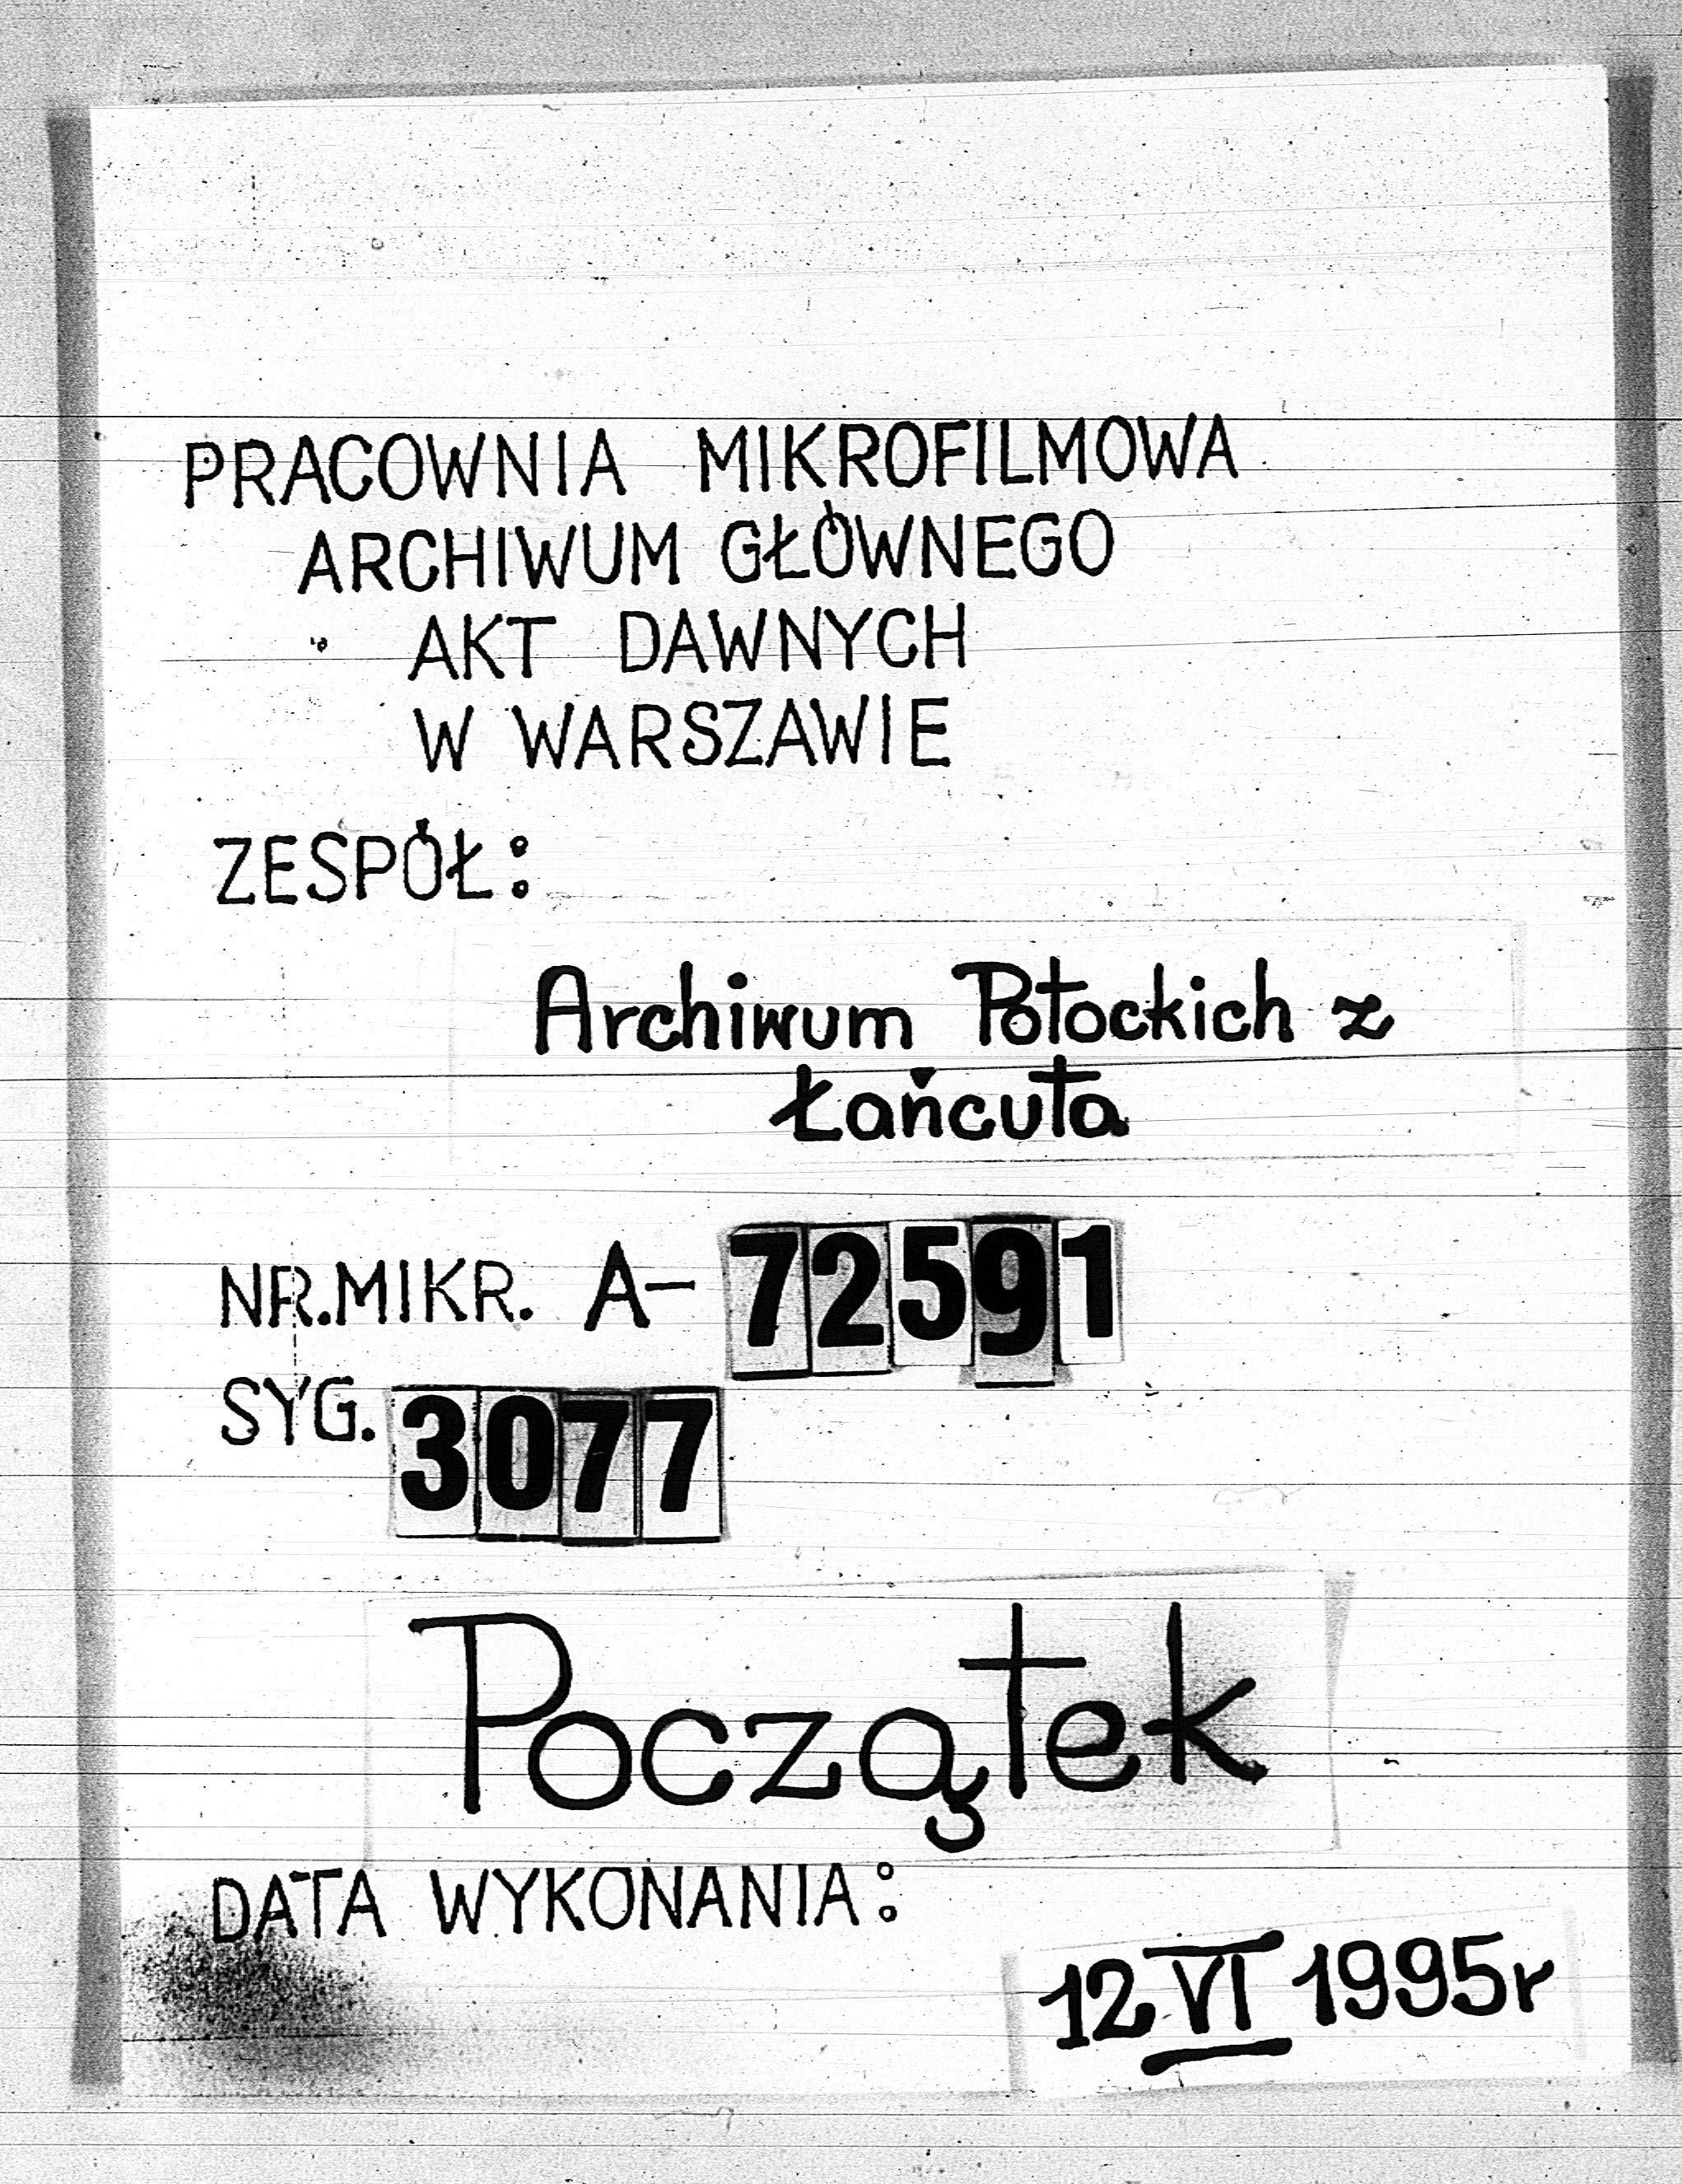 PRACOWNIA MIKROFILMOWA
ARCHIWUM GŁÓWNEGO
AKT DAWNYCH
W WARSZAWIE
ZESPÓŁ:
Archiwum Potockich z
Łańcuta
NR.MIKR. A- 72591
SYG. 3077
Początek
DATA WYKONANIA:
12 VI 1995r